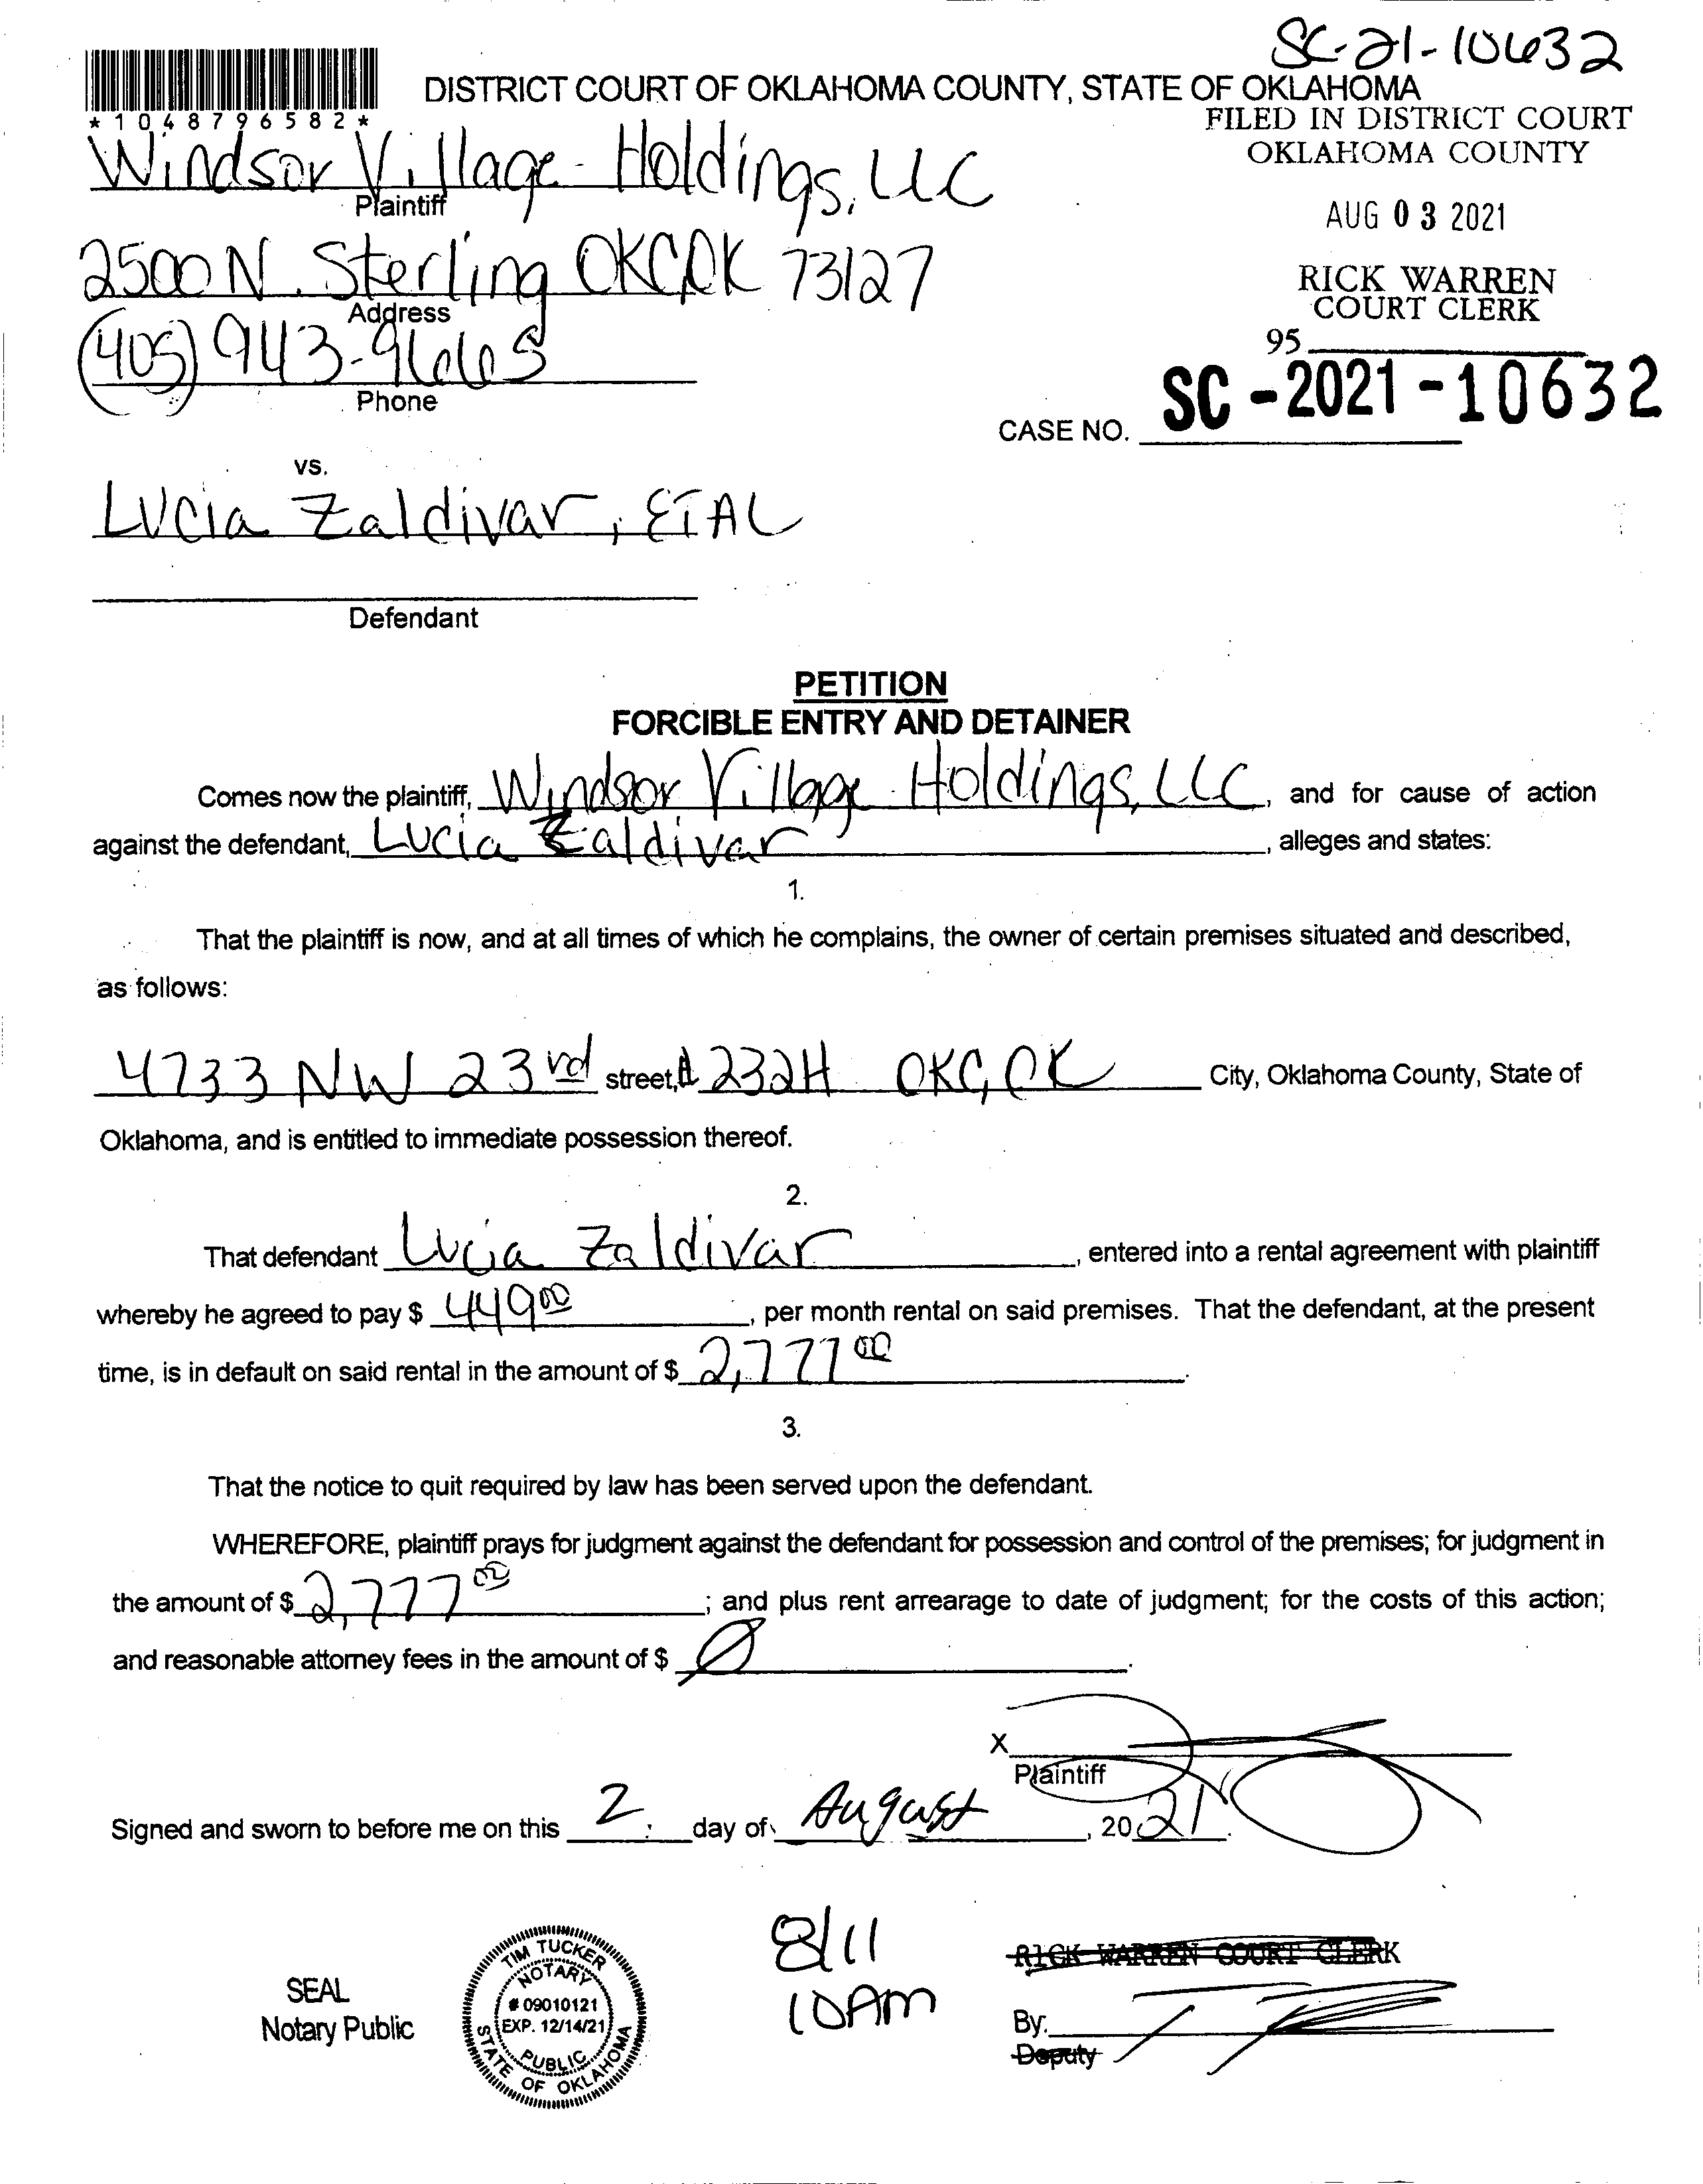 SC-21-10632
DISTRICT COURT OF OKLAHOMA COUNTY, STATE OF OKLAHOMA
*1048796582*
FILED IN DISTRICT COURT
OKLAHOMA COUNTY
Windsor Village Holdings, LLC
Plaintiff
AUG 03 2021
2500 N. Sterling OKC, OK 73127
Address
RICK WARREN
COURT CLERK
95
(405) 943-9665
Phone
CASE NO. SC-2021-10632
vs.
Lucia Zaldivar, ETAL
Defendant
PETITION
FORCIBLE ENTRY AND DETAINER
Comes now the plaintiff, Windsor Village Holdings, LLC, and for cause of action
against the defendant, Lucia Zaldivar, alleges and states:
1.
That the plaintiff is now, and at all times of which he complains, the owner of certain premises situated and described,
as follows:
4733 NW 23rd street, # 232H OKC, OK City, Oklahoma County, State of
Oklahoma, and is entitled to immediate possession thereof.
2.
That defendant Lucia Zaldivar, entered into a rental agreement with plaintiff
whereby he agreed to pay $ 449 00, per month rental on said premises. That the defendant, at the present
time, is in default on said rental in the amount of $ 2,777 00.
3.
That the notice to quit required by law has been served upon the defendant.
WHEREFORE, plaintiff prays for judgment against the defendant for possession and control of the premises; for judgment in
the amount of $ 2,777 00; and plus rent arrearage to date of judgment; for the costs of this action;
and reasonable attorney fees in the amount of $ Ø.
X
Plaintiff
Signed and sworn to before me on this 2 day of August, 2021.
8/11
10AM
RICK WARREN COURT CLERK
SEAL
Notary Public
TIM TUCKER
NOTARY
# 09010121
EXP. 12/14/21
PUBLIC
STATE OF OKLAHOMA
By:
Deputy